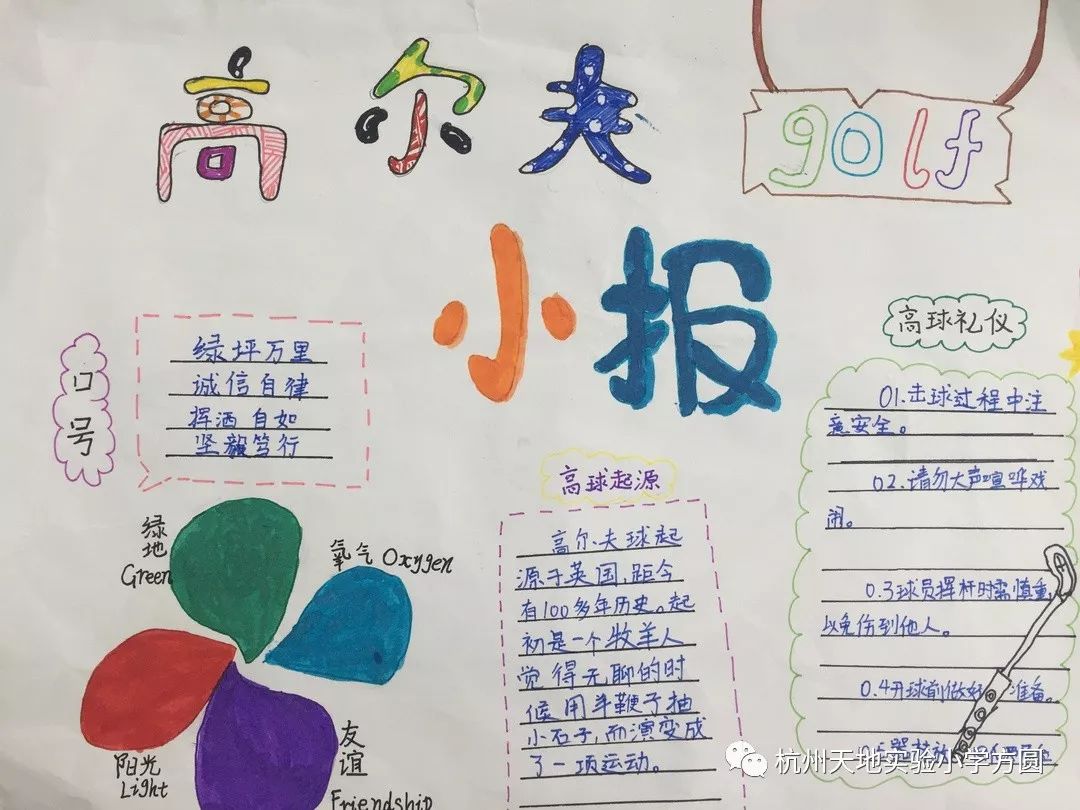 高尔夫
golf
小报
口号
绿坪万里
诚信自律
挥洒自如
坚毅笃行
绿地
Green
氧气 Oxygen
阳光
Light
友谊
Friendship
高球起源
高尔夫球起
源于英国,距今
有100多年历史。起
初是一个牧羊人
觉得无聊的时
候用羊鞭子抽
小石子,而演变成
了一项运动。
高球礼仪
01.击球过程中注
意安全。
02.请勿大声喧哗戏
闹。
0.3球员挥杆时需慎重,
以免伤到他人。
0.4开球前做好 准备。
杭州天地实验小学方圆